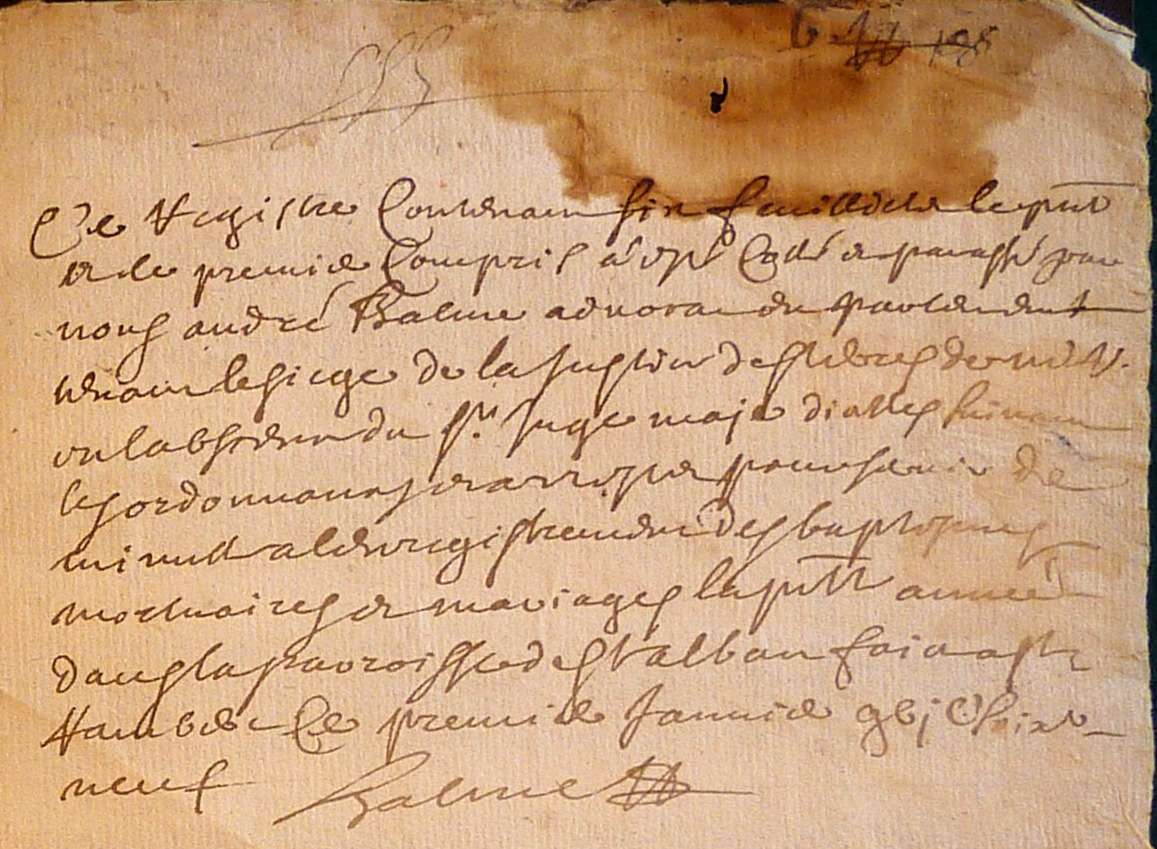 Ce Registre Contenant six feuilletz le pnt
et le premier Compris a esté Cotté et paraffé par
nous andré Balme advocat en parlement
tenant le siege de la Justice des terres de
en labsence du Sr. Juge maje dicelles suivant
les ordonnances et pour servir de
minutte a lenregistrement des baptesmes
mortuaires et mariages la pntt année
dans la parroisse de St alban faict a St
Rambert Ce premier Janvier gbjC soixte
neuf Balme